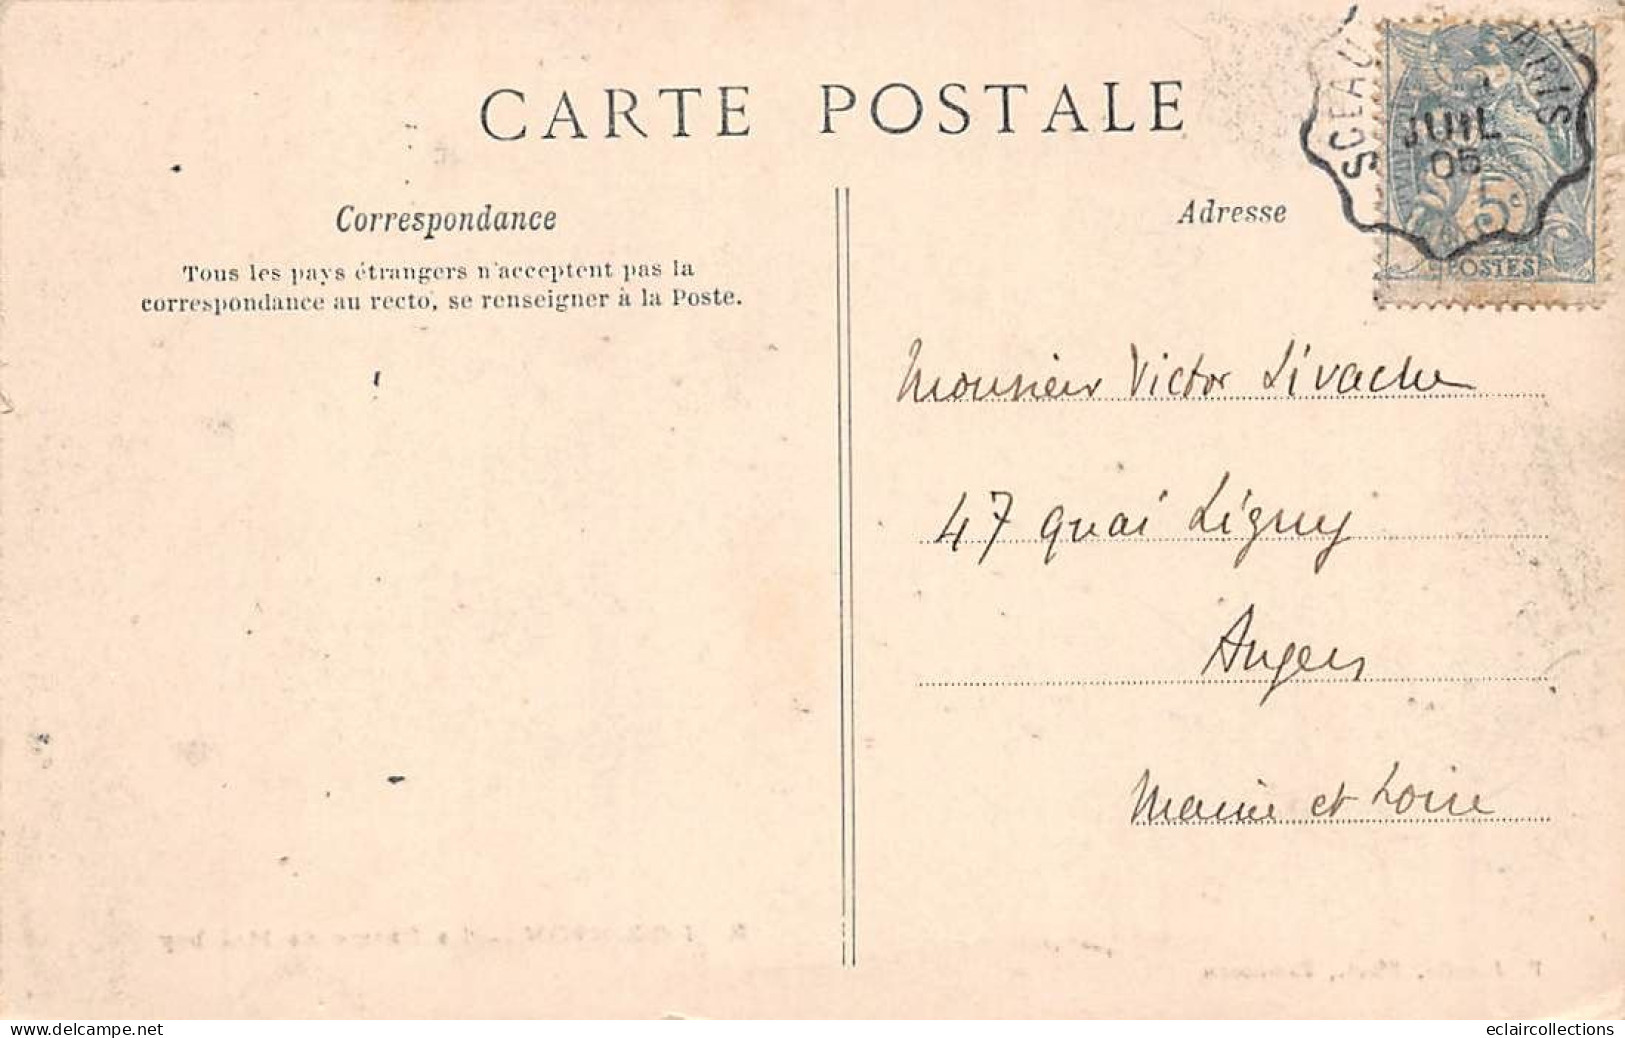 CARTE POSTALE
Correspondance
Tous les pays étrangers n'acceptent pas la
correspondance au recto, se renseigner à la Poste.
Adresse
SCEAU
ARIS
JUIL
05
5c
POSTES
Monsieur Victor Livache
47 quai Ligny
Angers
Maine et Loire
www.delcampe.net
eclaircollections